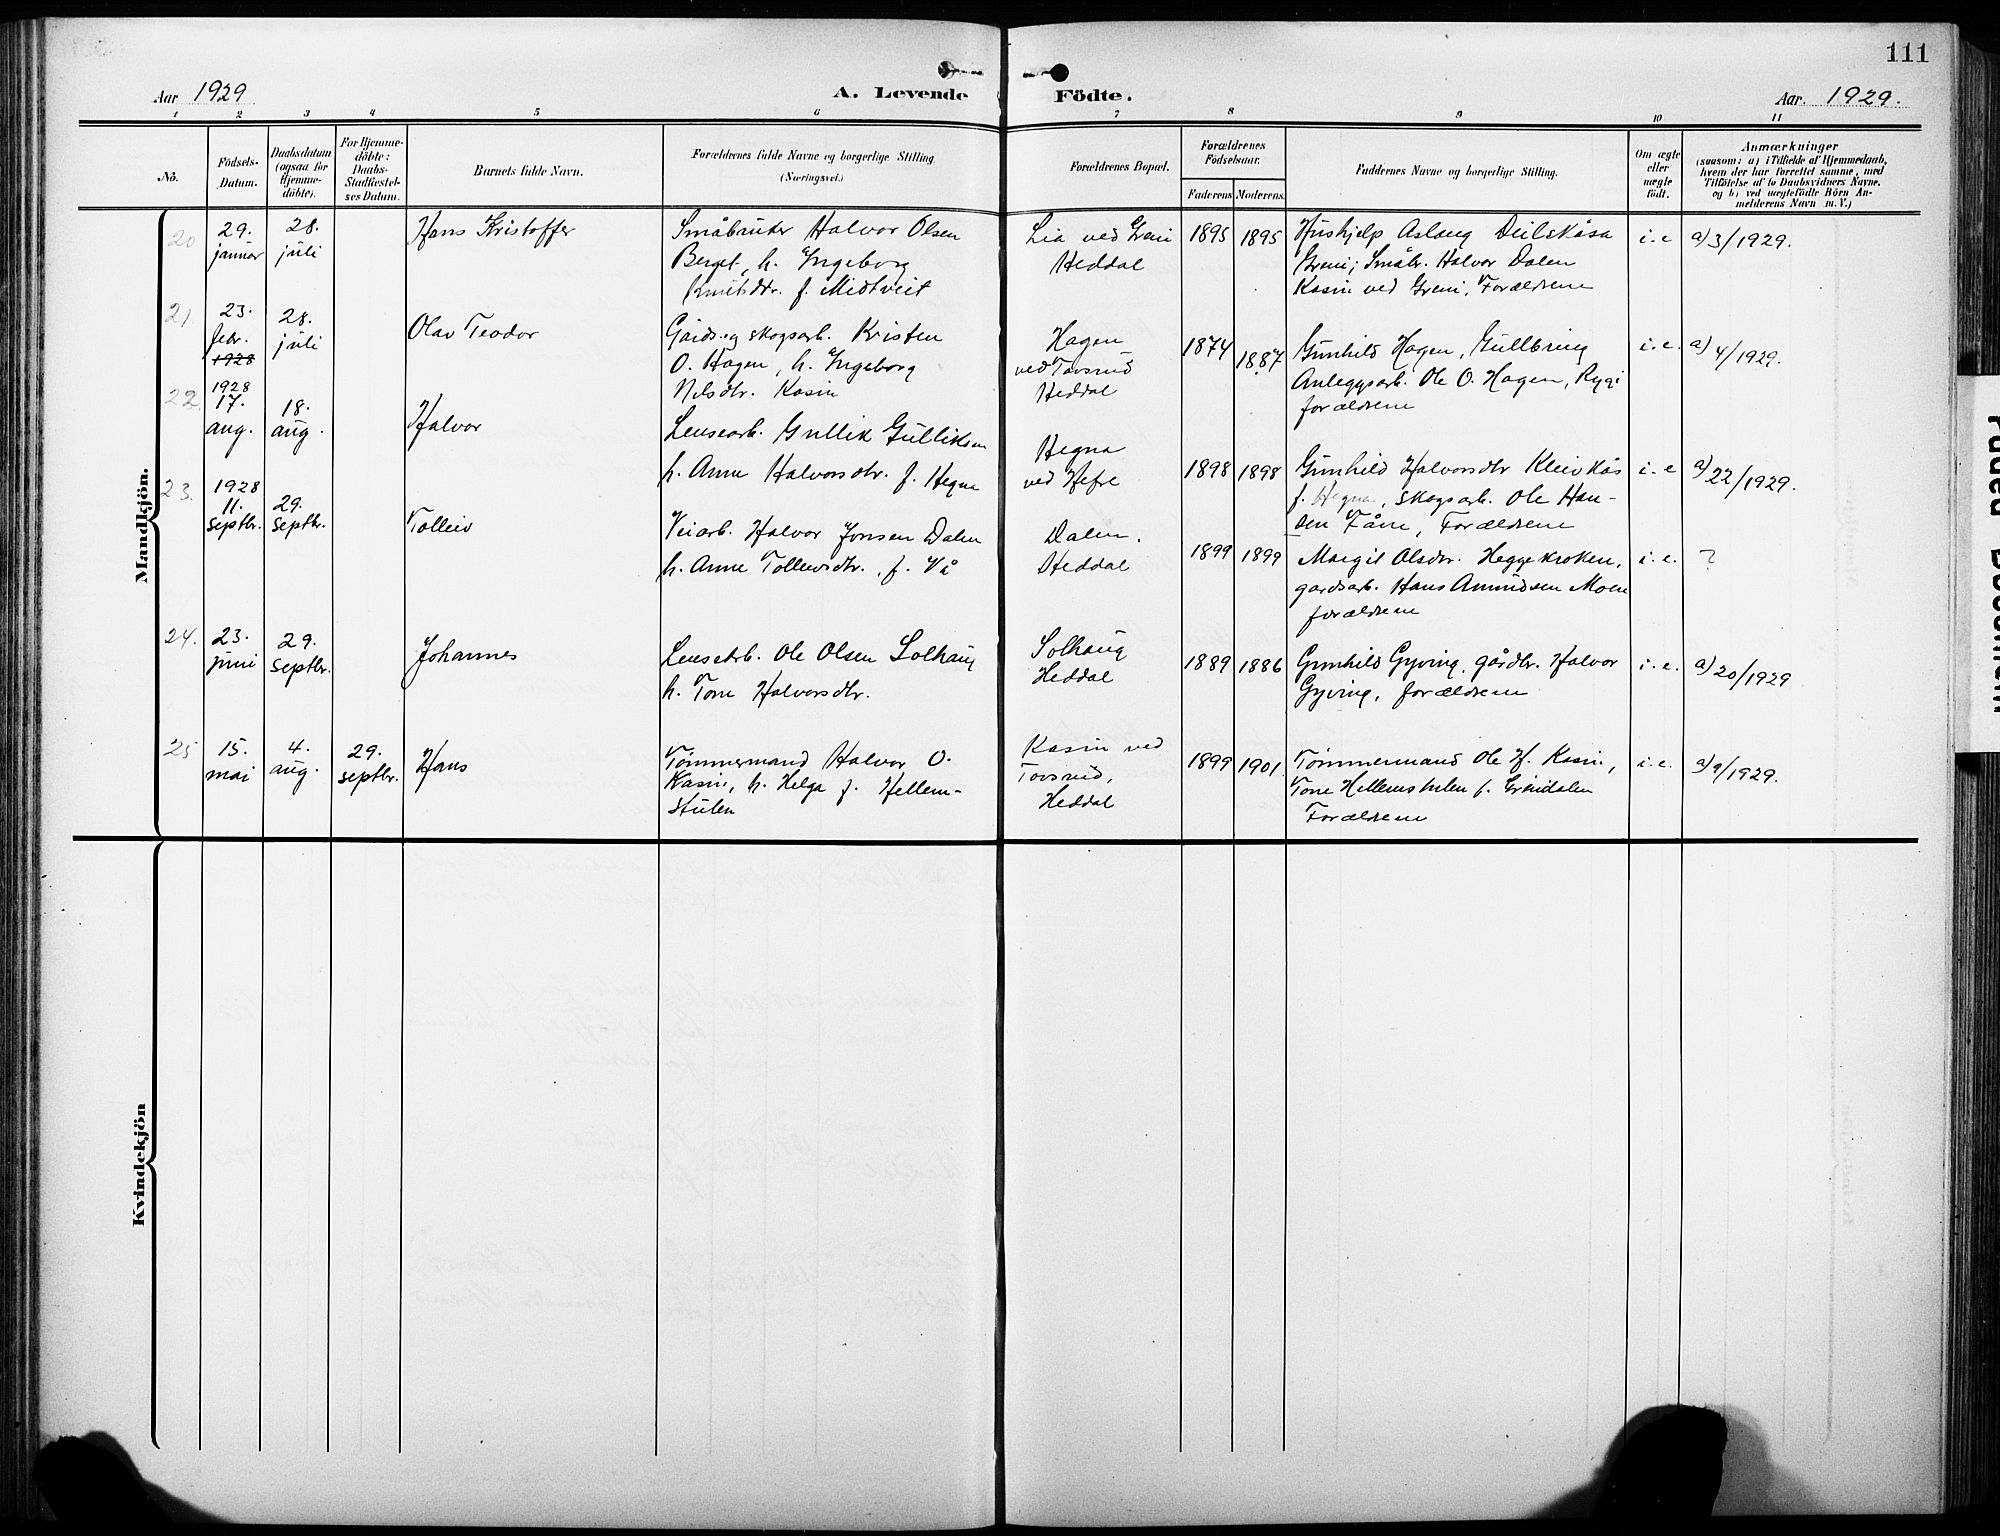 111
Aar 1929
A. Levende Födte.
Aar. 1929.
1 2 3 4 5 6 7 8 9 10 11
No.
Födsels-
Datum.
Daabsdatum
(ogsaa for
Hjemme-
döbte).
For Hjemme-
döbte:
Daabs-
Stadfæstel-
ses Datum.
Barnets fulde Navn.
Forældrenes fulde Navne og borgerlige Stilling
(Næringsvei.)
Forældrenes Bopæl.
Forældrenes
Födselsaar.
Faderens Moderens
Faddernes Navne og borgerlige Stilling.
Om ægte
eller
uægte
födt.
Anmærkninger
(saasom: a) i Tilfælde af Hjemmedaab,
hvem der har forrettet samme, med
Tilföielse af to Daabsvidners Navne,
og b) ved uægtefödte Börn An-
melderens Navn m. V.)
Mandkjön.
20
29.
januar
28.
juli
Hans Kristoffer
Småbruker Halvor Olsen
Berget, h. Ingeborg
Knutsdtr. f. Midtveit
Lia ved Greni
Heddal
1895
1895
Hushjelp Aslaug Deilskåsa
Greni; Småbr. Halvor Dalen
Kasin ved Greni, Forældrene
i. e
a) 3/1929.
21
23.
febr.
1928
28.
juli
Olav Teodor
Gårds. og skogsarb. Kristen
O. Hagen, h. Ingeborg
Nilsdtr. Kasin
Hagen
ved Tovsrud
Heddal
1874
1887
Gunhild Hagen, Gullbring
Anleggsarb. Ole O. Hagen, Rygi
forældrene
i. e.
a) 4/1929.
22.
1928
17.
aug.
18.
aug.
Halvor
Lensearb. Gullik Gulliksen
h. Anne Halvorsdtr. f. Hegna
Hegna
ved Hefre
1898
1898
Gunhild Halvorsdtr Kleivkås
f. Hegna, skogsarb. Ole Han-
sen Fåne, Forældrene
i. e
a) 22/1929.
23.
1928
11.
septbr.
29.
septbr.
Tolleiv
Veiarb. Halvor Jonsen Dalen
h. Anne Tolleivsdtr., f. Vå
Dalen.
Heddal
1899
1899
Margit Olsdtr. Heggekroken,
gardsarb. Hans Amundsen Moen
forældrene
i. e.
?
24.
23.
juni
29.
septbr.
Johannes
Lensearb. Ole Olsen Solhaug
h. Tone Halvorsdtr.
Solhaug
Heddal
1889
1886
Gunhild Gyving, gårdbr. Halvor
Gyving, forældrene
i. e.
a) 20/1929
25
15.
mai
4.
aug.
29.
septbr.
Hans
Tømmermand Halvor O.
Kasin, h. Helga f. Hellem-
stulen
Kasin ved
Tovsrud,
Heddal
1899
1901
Tømmermand Ole H. Kasin,
Tone Hellemstulen f. Grindalen
Forældrene
i. e.
a) 9/1929.
Kvindekjön